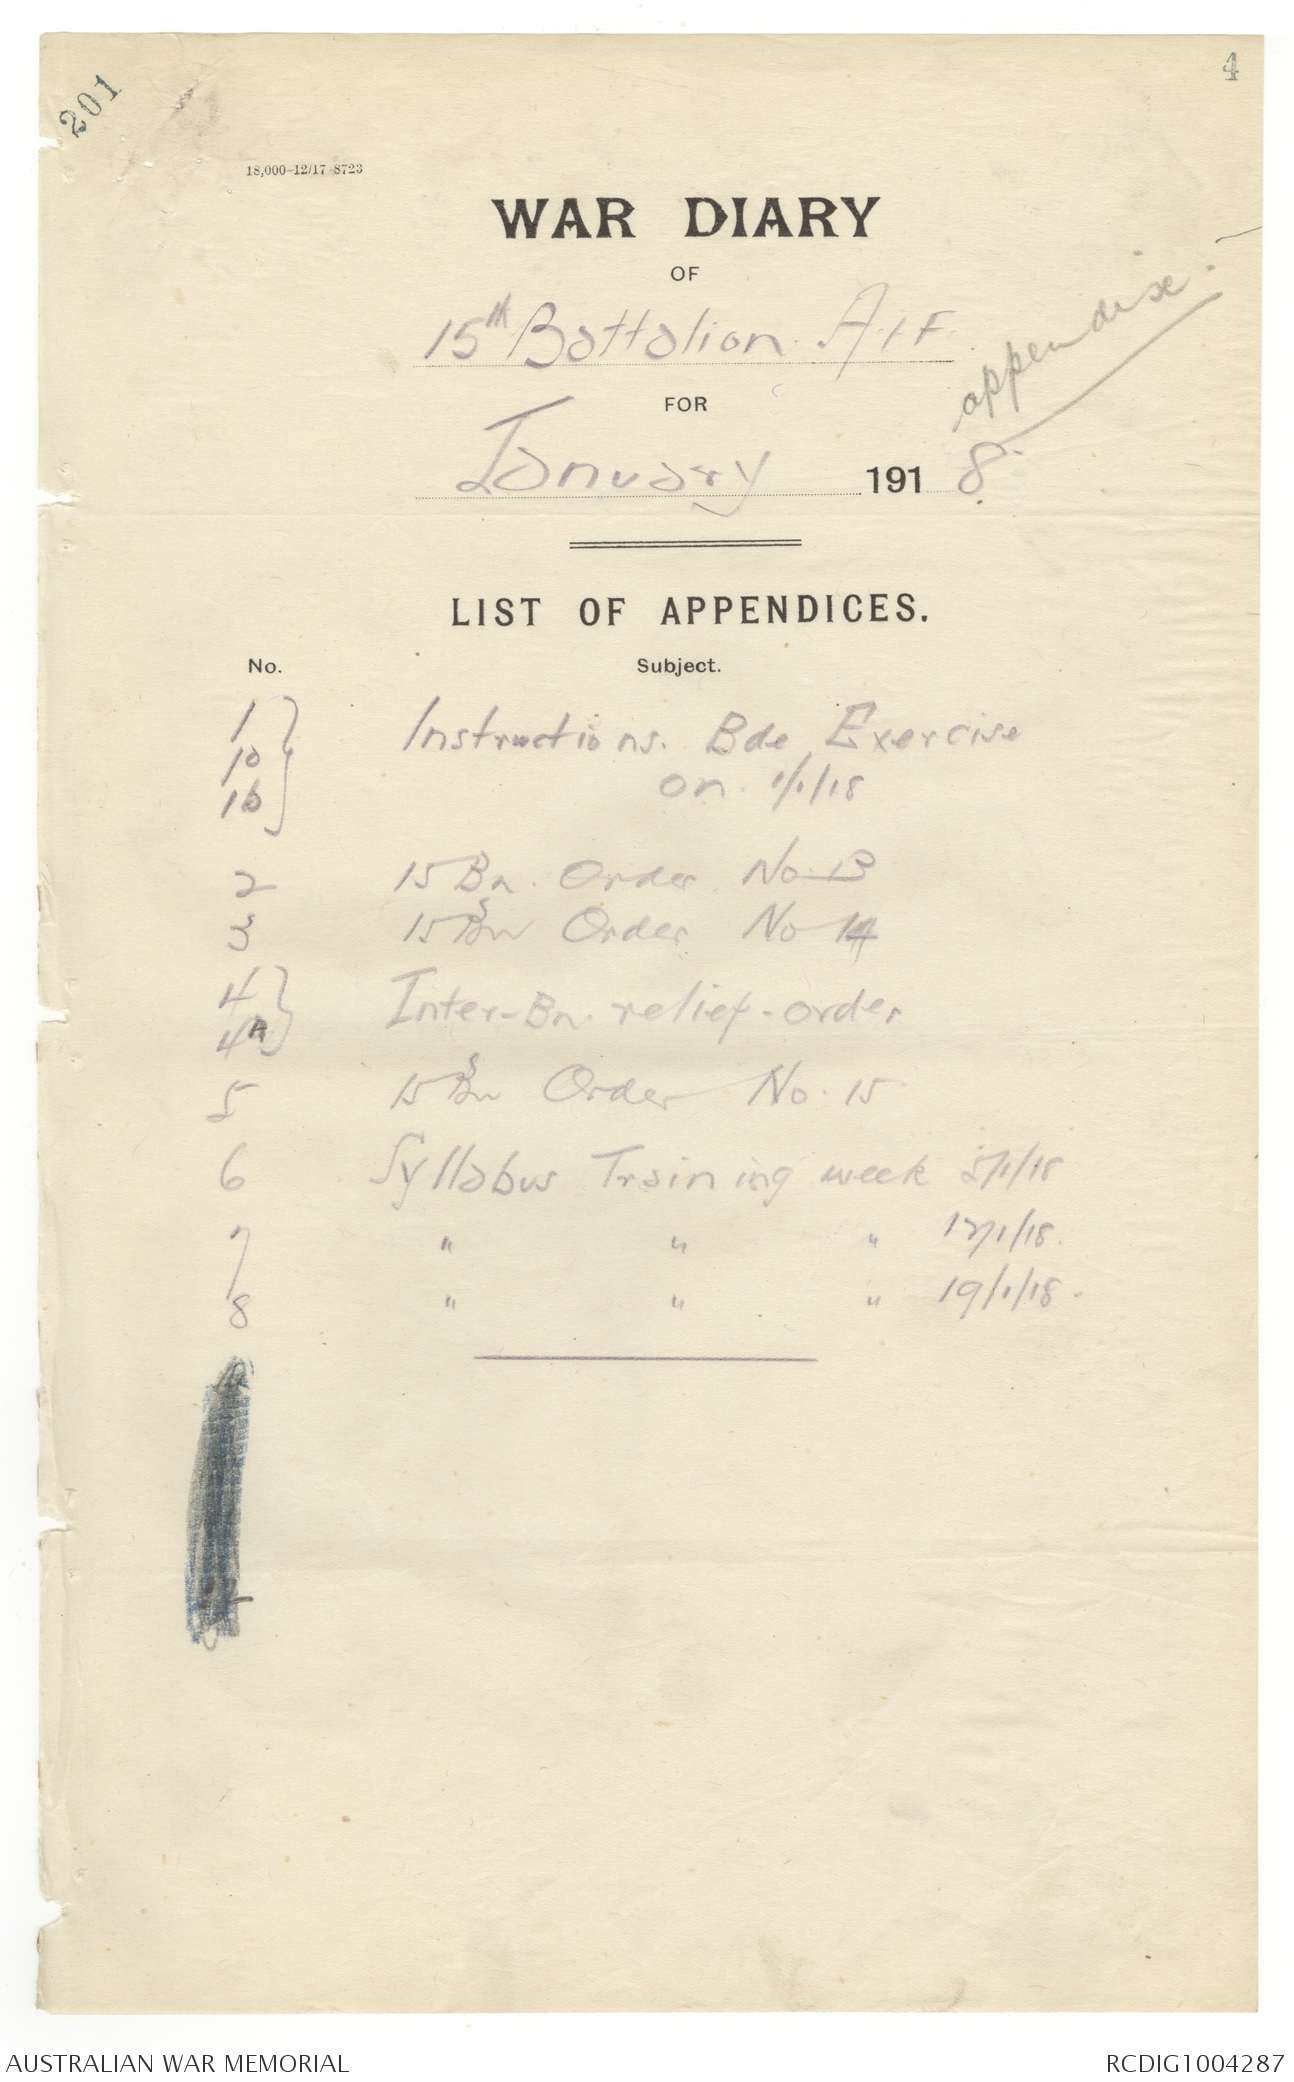 201
4
18,000–12/17 8723
WAR DIARY
OF
15th Battalion. A.I.F.
appendise.
FOR
January 1918.
LIST OF APPENDICES.
No. Subject.
1 } Instructions. Bde Exercise
1a } on. 1/1/18
1b }
2 15 Bn. Order No. 13
3 15 Bn Order No 14
4 } Inter-Bn. relief-order
4A }
5 15 Bn Order No. 15
6 Syllabus Training week 5/1/18
7 " " " 12/1/18.
8 " " " 19/1/18.
AUSTRALIAN WAR MEMORIAL
RCDIG1004287